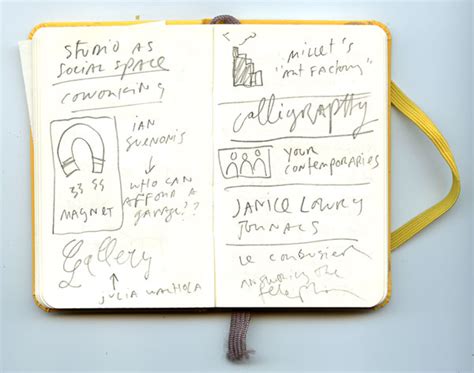 STUDIO AS
SOCIAL SPACE
COWORKING
IAN
SVENONIUS
WHO CAN
AFFORD A
GARAGE??
MAGNET
Gallery
JULIA WARHOLA
MILLET'S
"ART FACTORY"
Calligraphy
YOUR
CONTEMPORARIES
JANICE LOWRY
JOURNALS
LE CORBUSIER
ANSWERING THE
TELEPHONE